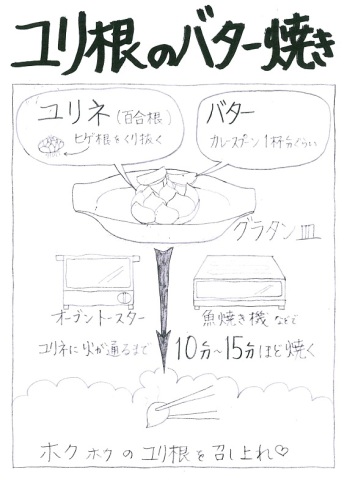 ユリ根のバター焼き
ユリネ(百合根)
ヒゲ根をくり抜く
バター
カレースプーン1杯分ぐらい
グラタン皿
オーブントースター
魚焼き機などで
ユリネに火が通るまで 10分~15分ほど焼く
ホクホクのユリ根を召し上れ♡